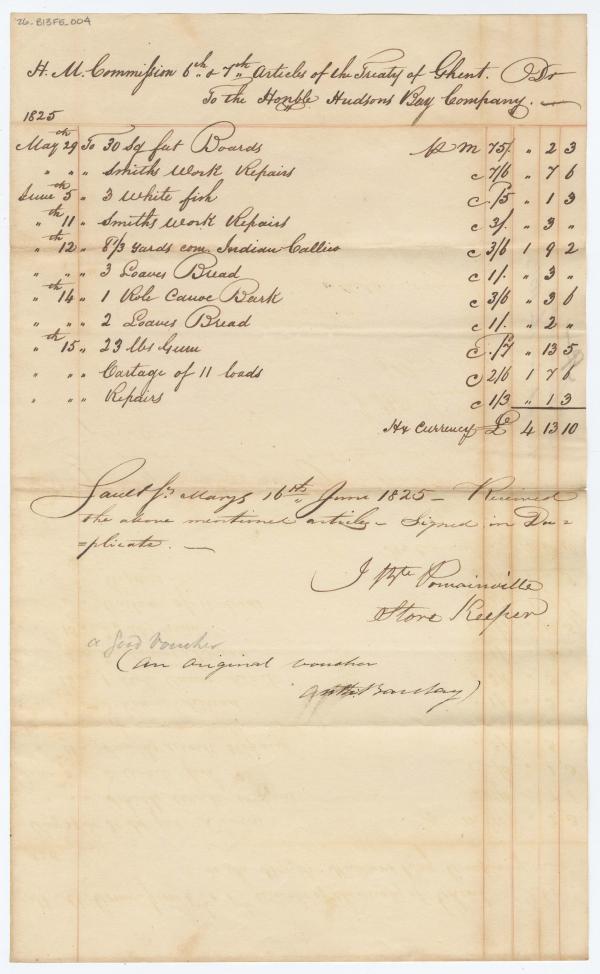 26-B13F5-004
H. M. Commission 6th & 7th Articles of the Treaty of Ghent. Dr
To the Honble Hudsons Bay Company. —
1825
May 29th To 30 Sq feet Boards p M 75/ " 2 3
" " " Smiths Work Repairs c 7/6 " 7 6
June 5th " 3 White fish c /5 " 1 3
" 11th " Smiths Work Repairs c 3/. " 3 "
" 12th " 8 1/3 yards com. Indian Callico c 3/6 1 9 2
" " " 3 Loaves Bread c 1/. " 3 "
" 14th " 1 Role Canoe Bark c 3/6 " 3 6
" " " 2 Loaves Bread c 1/. " 2 "
" 15th " 23 lbs Gum c /7 " 13 5
" " " Cartage of 11 loads c 2/6 1 7 6
" " " Repairs c 1/3 " 1 3
Hx Currency £ 4 13 10
Sault St. Marys 16th June 1825 — Received
the above mentioned articles — Signed in Du=
=plicate. —
J Bte Romainville
Store Keeper
a good Voucher
(an original voucher
Anth. Barclay)